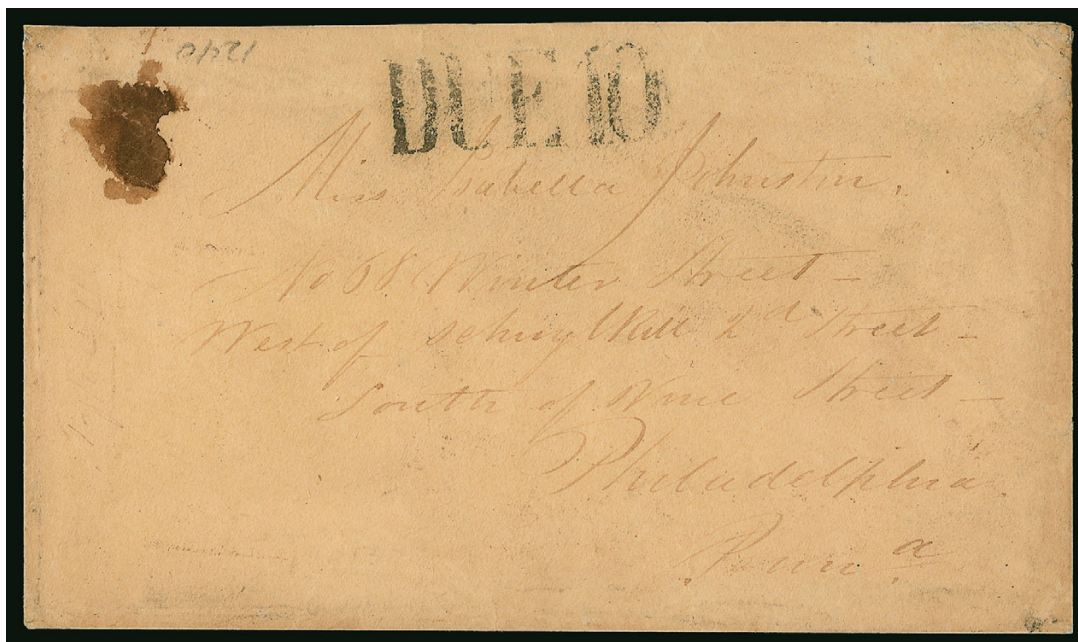 1240
DUE 10
Miss Isabella Johnston.
No 68 Winter Street -
West of Schuylkill 2d Street -
South of Vine Street -
Philadelphia
Penna.